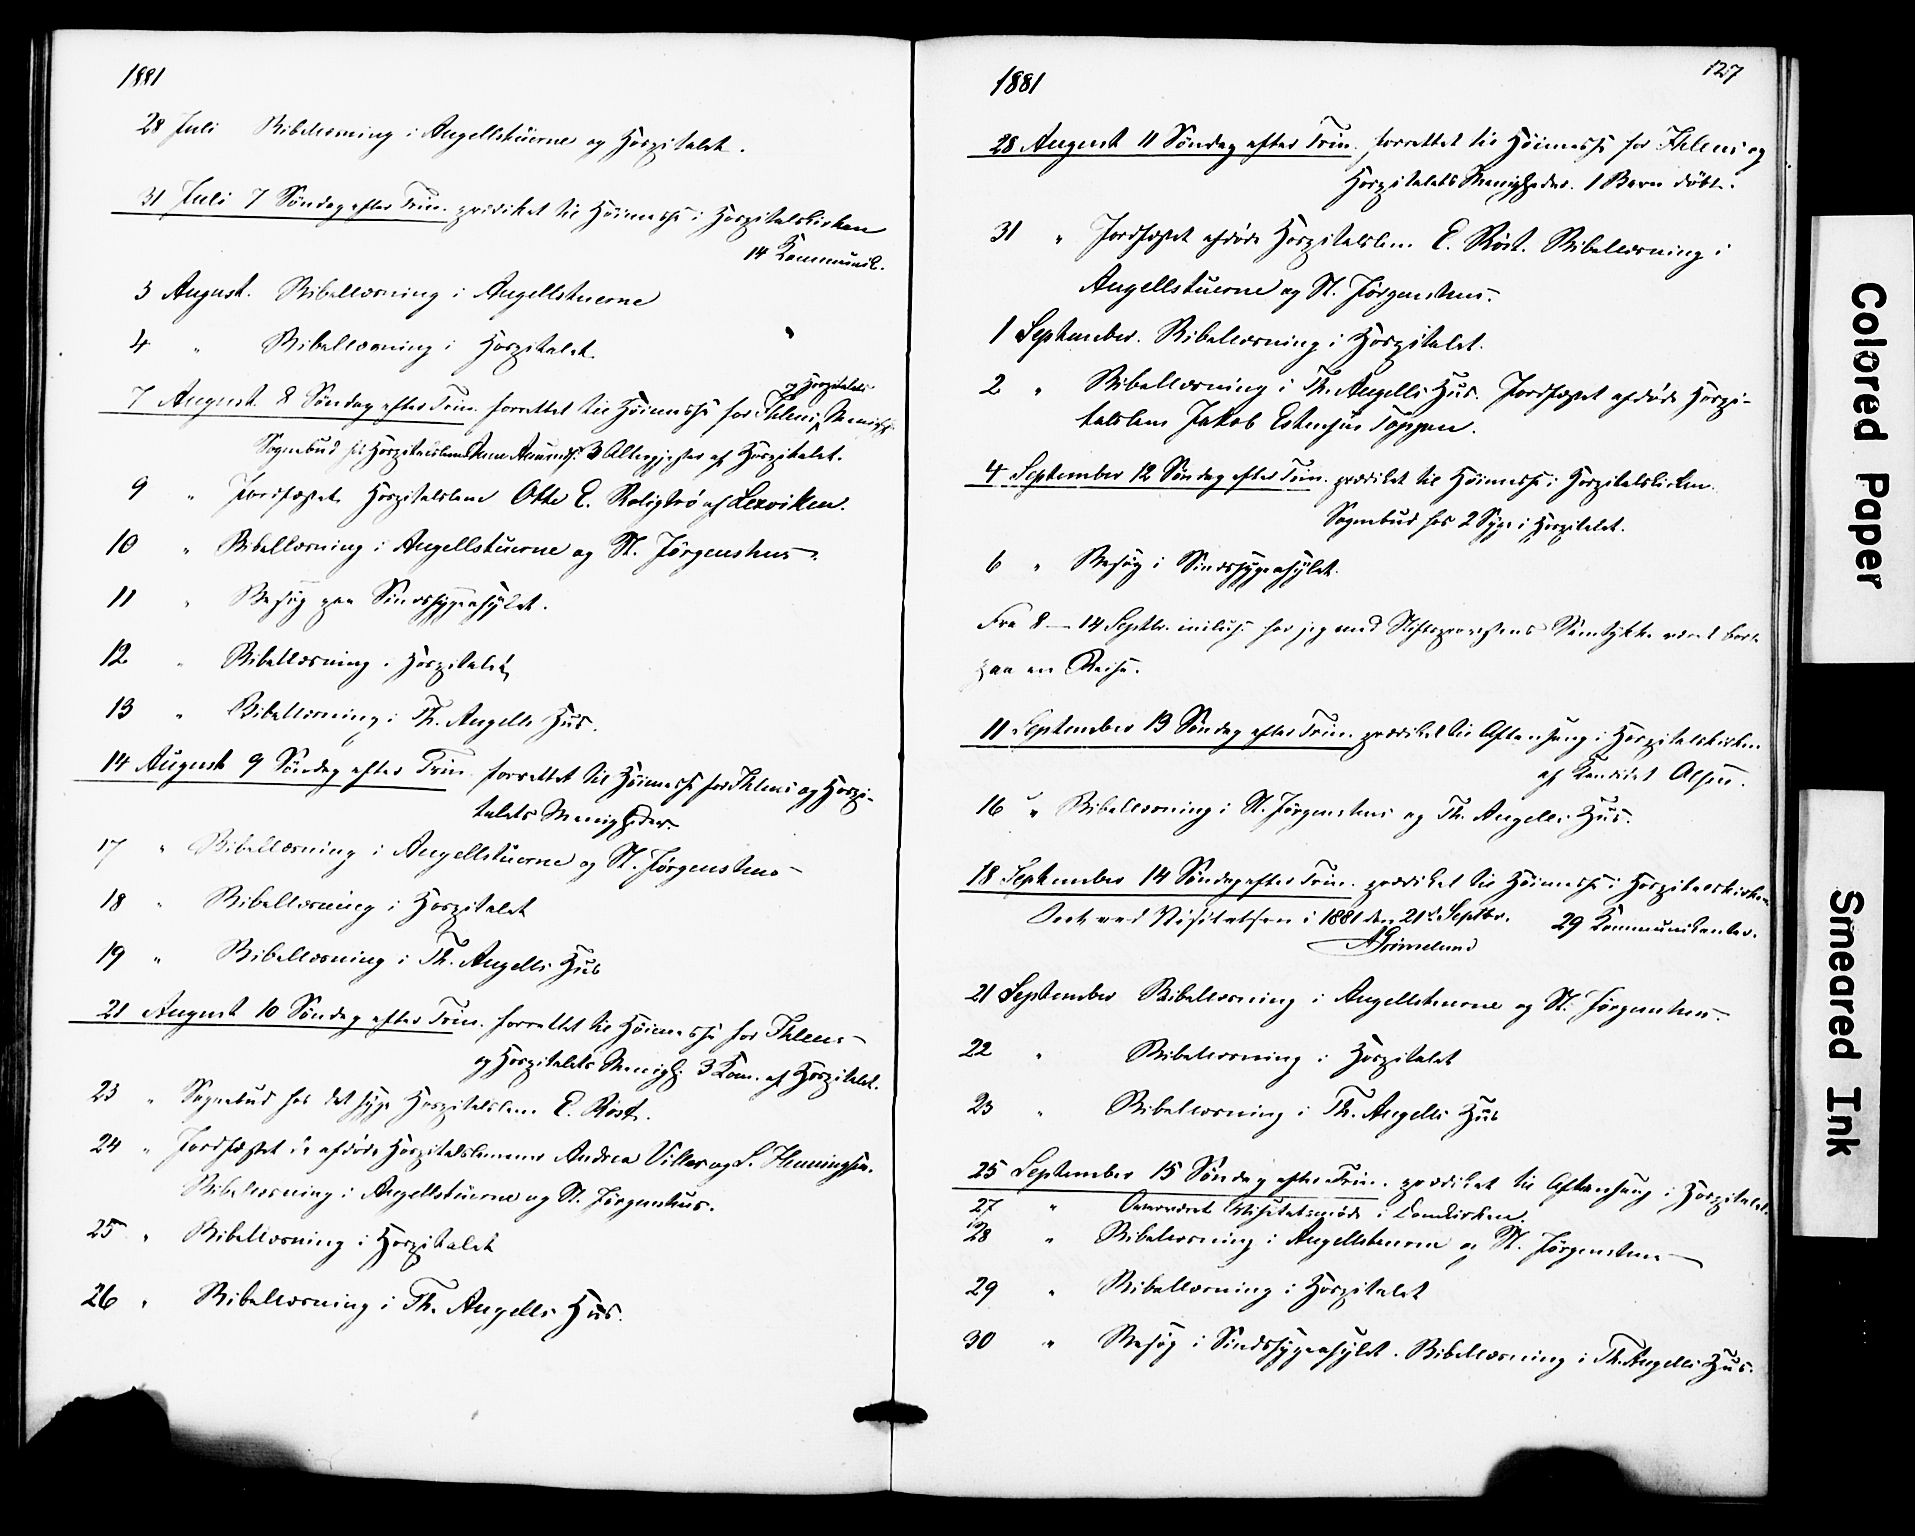 1881
28 Juli Bibellæsning i Angellstuerne og Hospitalet.
31 Juli 7 Søndag efter Trin. prædiket til Høimesse i Hospitalskirken
14 Kommunik.
3 August. Bibellæsning i Angellstuerne
4 " Bibellæsning i Hospitalet.
og Hospitalets
7 August. 8 Søndag efter Trin. forrettet til Høimesse for Ihlens Menigh.
Sognebud hos Hospitalslem 3 Altergjester af Hospitalet.
9 " Jordfæstet Hospitalslem Otte E. Roligtrø af Lexviken.
10 " Bibellæsning i Angellstuerne og St. Jørgenshus.
11 " Besøg paa Sindssygeasylet.
12 " Bibellæsning i Hospitalet
13 " Bibellæsning i Th. Angells Hus.
14 August 9 Søndag efter Trin. forrettet til Høimesse for Ihlens og Hospi-
talets Menigheder.
17 " Bibellæsning i Angellstuerne og St. Jørgenshus
18 " Bibellæsning i Hospitalet
19 " Bibellæsning i Th. Angells Hus
21 August 10 Søndag efter Trin. forrettet til Høimesse for Ihlens
og Hospitalets Menigh. 3 Kom. af Hospitalet.
23 " Sognebud hos det syge Hospitalslem E. Röst.
24 " Jordfæstet de afdøde Hospitalslemmer Andrea Viller og L. Henningsen.
Bibellæsning i Angellstuerne og St. Jørgenshus.
25 " Bibellæsning i Hospitalet
26 " Bibellæsning i Th. Angells Hus.
127
1881
28 August 11 Søndag efter Trin. forrettet til Høimesse for Ihlens og
Hospitalets Menigheder. 1 Barn døbt.
31 " Jordfæstet afdøde Hospitalslem E. Röst. Bibellæsning i
Angellstuerne og St. Jørgenshus.
1 September. Bibellæsning i Hospitalet.
2 " Bibellæsning i Th. Angells Hus. Jordfæstet afdøde Hospi-
talslem Jakob Estensen Toppen.
4 September 12 Søndag efter Trin. prædiket til Høimesse i Hospitalskirken.
Sognebud hos 2 Syge i Hospitalet.
6 " Besøg i Sindssygeasylet.
Fra 8 – 14 Septbr. inclus. har jeg med Stiftsprovstens Samtykke været bort
paa en Reise.
11 September 13 Søndag efter Trin. prædiket til Aftensang i Hospitalskirken
af Kandidat Olsen.
16 " Bibellæsning i St. Jørgenshus og Th. Angells Hus.
18 September 14 Søndag efter Trin. prædiket til Høimesse i Hospitalskirken
29 Kommunikanter.
ved Visitatsen i 1881 den 21de Septbr.
AGrimelund
21 September Bibellæsning i Angellstuerne og St. Jørgenshus.
22 " Bibellæsning i Hospitalet
23 " Bibellæsning i Th. Angells Hus
25 September 15 Søndag efter Trin. prædiket til Aftensang i Hospitalet.
27 " Overværet Visitatsmøde i Domkirken.
28 " Bibellæsning i Angellstuerne og St. Jørgenshus
29 " Bibellæsning i Hospitalet
30 " Besøg i Sindssygeasylet. Bibellæsning i Th. Angells Hus.
Colored Paper
Smeared Ink